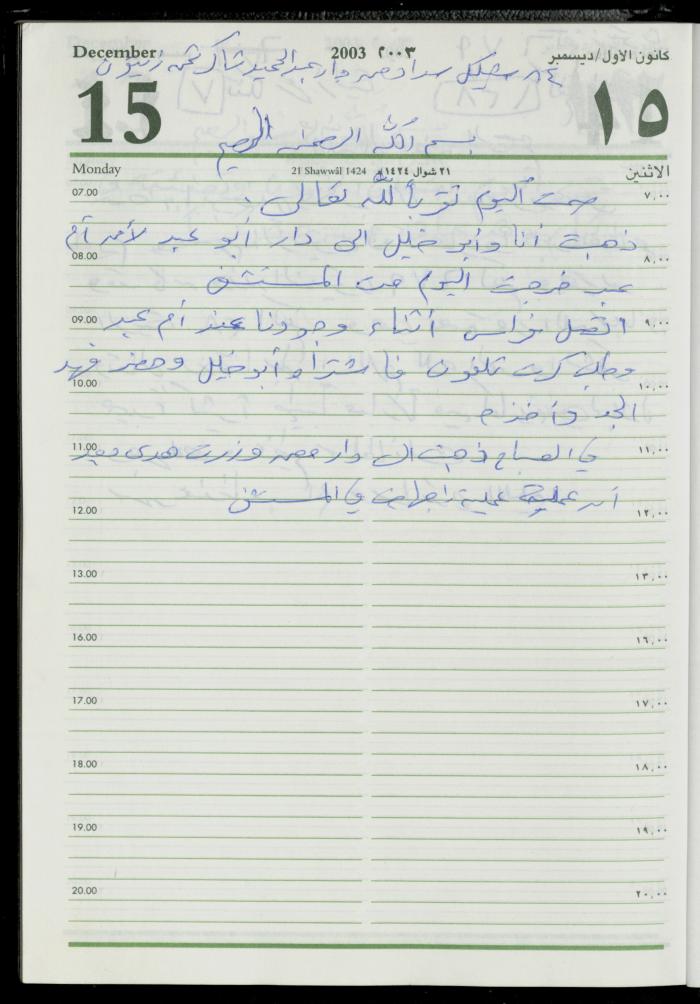 December 2003 ٢٠٠٣ كانون الأول/ديسمبر
٨٤ شيكل سداد من دار عبد الحميد شاكر ثمن زيتون
15 ١٥
بسم الله الرحمن الرحيم
Monday 21 Shawwāl 1424 ٢١ شوال ١٤٢٤هـ الاثنين
07.00 ٧,٠٠
صمت اليوم تقرباً لله تعالى.
ذهبت أنا وأبو خليل الى دار أبو عبد لأمر أم
08.00 ٨,٠٠
عبد خرجت اليوم من المستشفى
09.00 ٩,٠٠
اتصل فراس أثناء وجودنا عند أم عبد
وطلب كرت تلفون فاشتراه أبو خليل وحضر فهد
10.00 ١٠,٠٠
الجد وأخذه
11.00 ١١,٠٠
في الصباح ذهبت الى دار وزرت هدى
12.00 ١٢,٠٠
عملية في المستشفى
13.00 ١٣,٠٠
16.00 ١٦,٠٠
17.00 ١٧,٠٠
18.00 ١٨,٠٠
19.00 ١٩,٠٠
20.00 ٢٠,٠٠